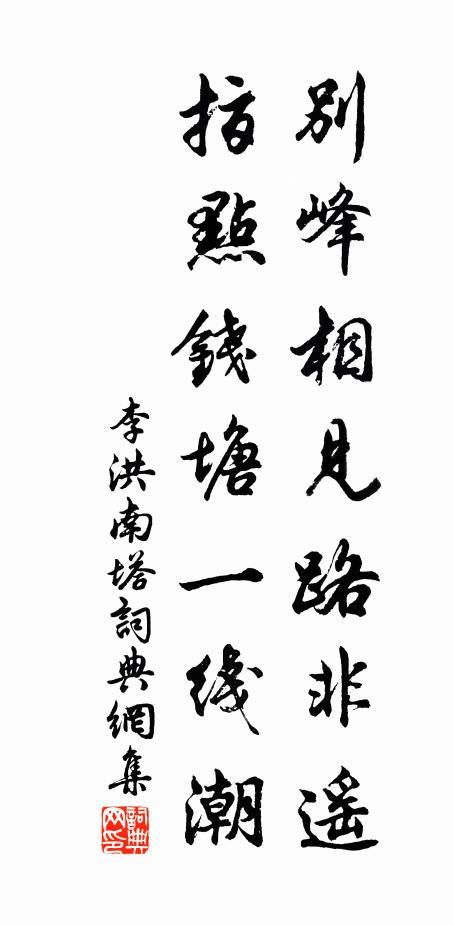 別峰相見路非遥
指點錢塘一綫潮
李洪南塔詞典網集
詞典网印